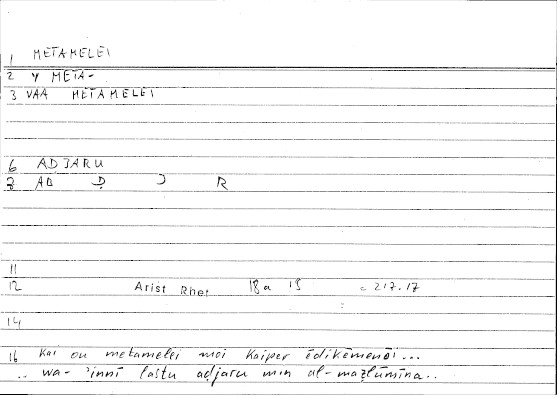 1 METAMELEI
2 V META-
3 VAA METAMELEI
6 ADJARU
8 AB Ḍ J R
11
12 Arist Rhet 18a 15 = 217.17
14
16 Kai ou metamelei moi kaiper ēdikēmenōi...
.. wa-'innī lastu adjaru min al-maẓlūmīna..